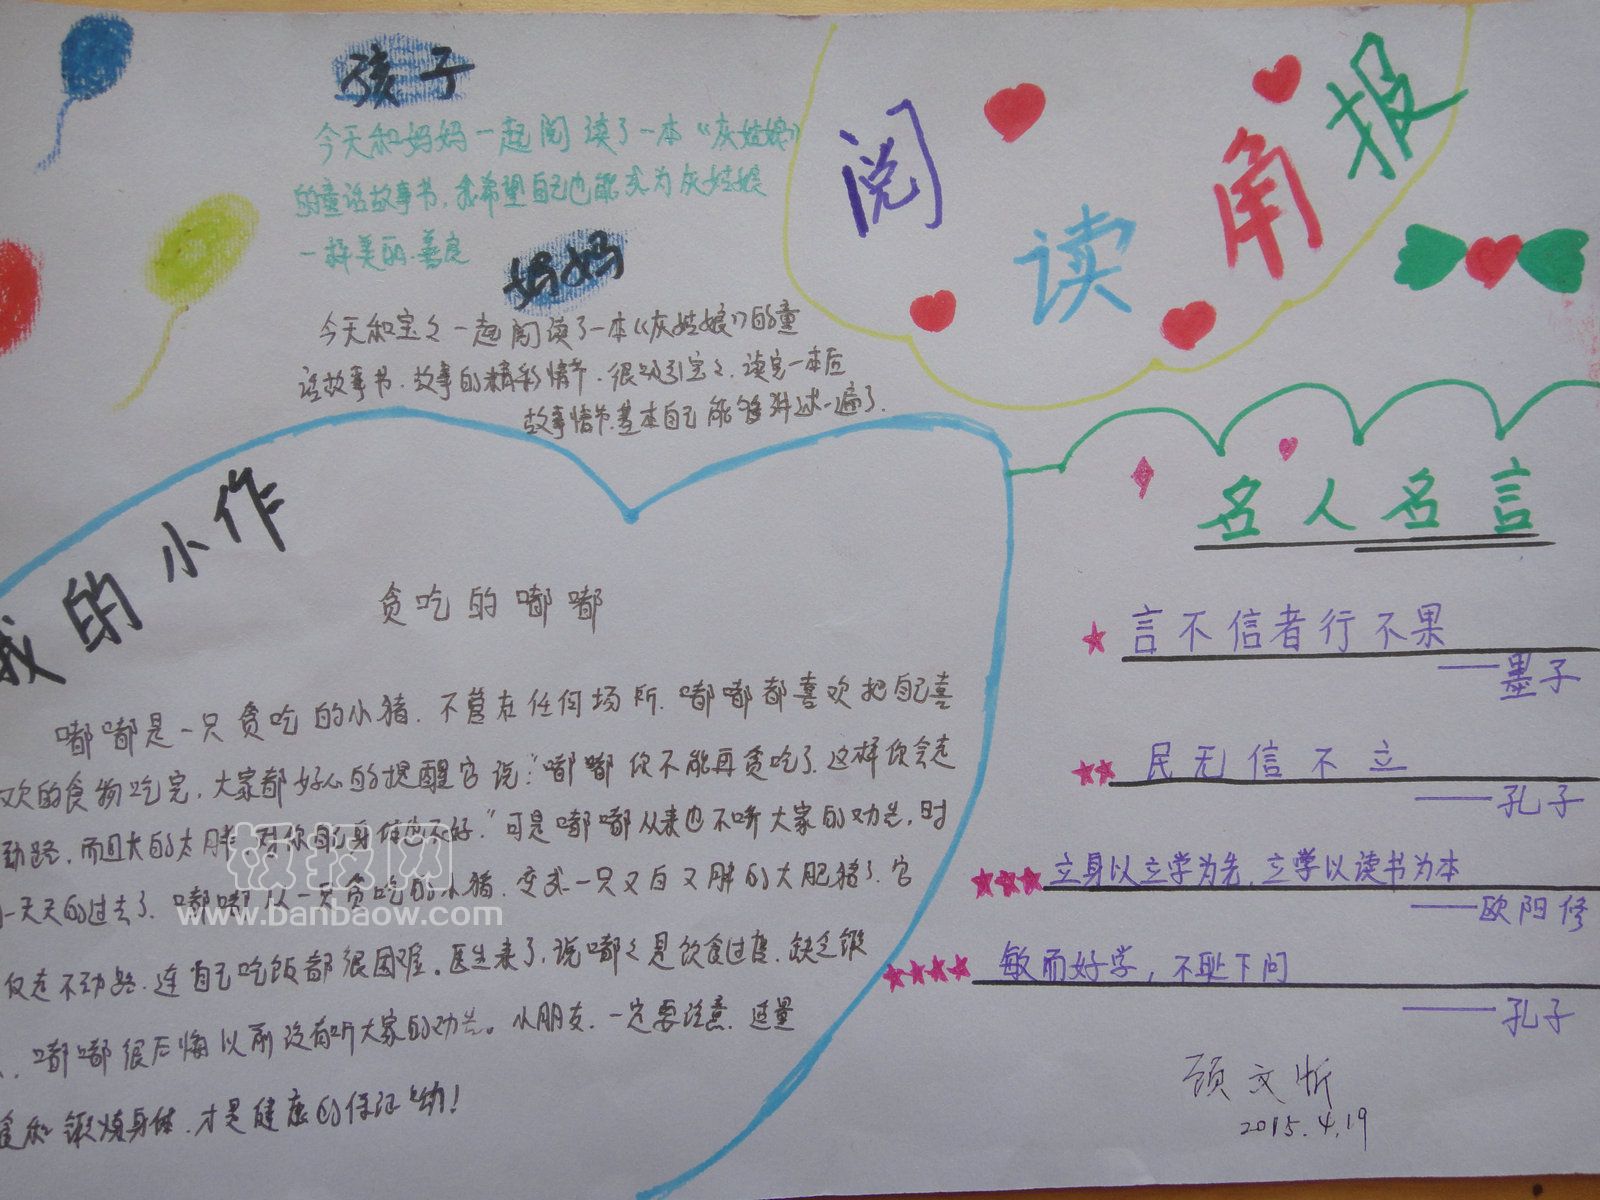 阅读角报
孩子
今天和妈妈一起阅读了一本《灰姑娘》
的童话故事书,我希望自己也能成为灰姑娘
一样美丽.善良
妈妈
今天和宝々一起阅读了一本《灰姑娘》的童
话故事书.故事的精彩情节.很吸引宝々.读完一本后
故事情节.基本自己能够讲述一遍了.
我的小作
贪吃的嘟嘟
嘟嘟是一只贪吃的小猪.不管在任何场所.嘟嘟都喜欢把自己喜
欢的食物吃完,大家都好心的提醒它说:“嘟嘟你不能再贪吃了.这样你会走
动路,而且大的太胖 对你自己身体也不好.”可是嘟嘟从来也不听大家的劝告,时
一天天的过去了.嘟嘟从一只贪吃的小猪.变成一只又白又胖的大肥猪了.它
仅走不动路.连自己吃饭都很困难。医生来了,说嘟々是饮食过度.缺乏锻
.嘟嘟很后悔以前没有听大家的劝告。小朋友.一定要注意.适量
食和锻炼身体.才是健康的保证哟!
名人名言
言不信者行不果
——墨子
民无信不立
——孔子
立身以立学为先,立学以读书为本
——欧阳修
敏而好学,不耻下问
——孔子
顾文忻
2015.4.19
板报网
www.banbaow.com